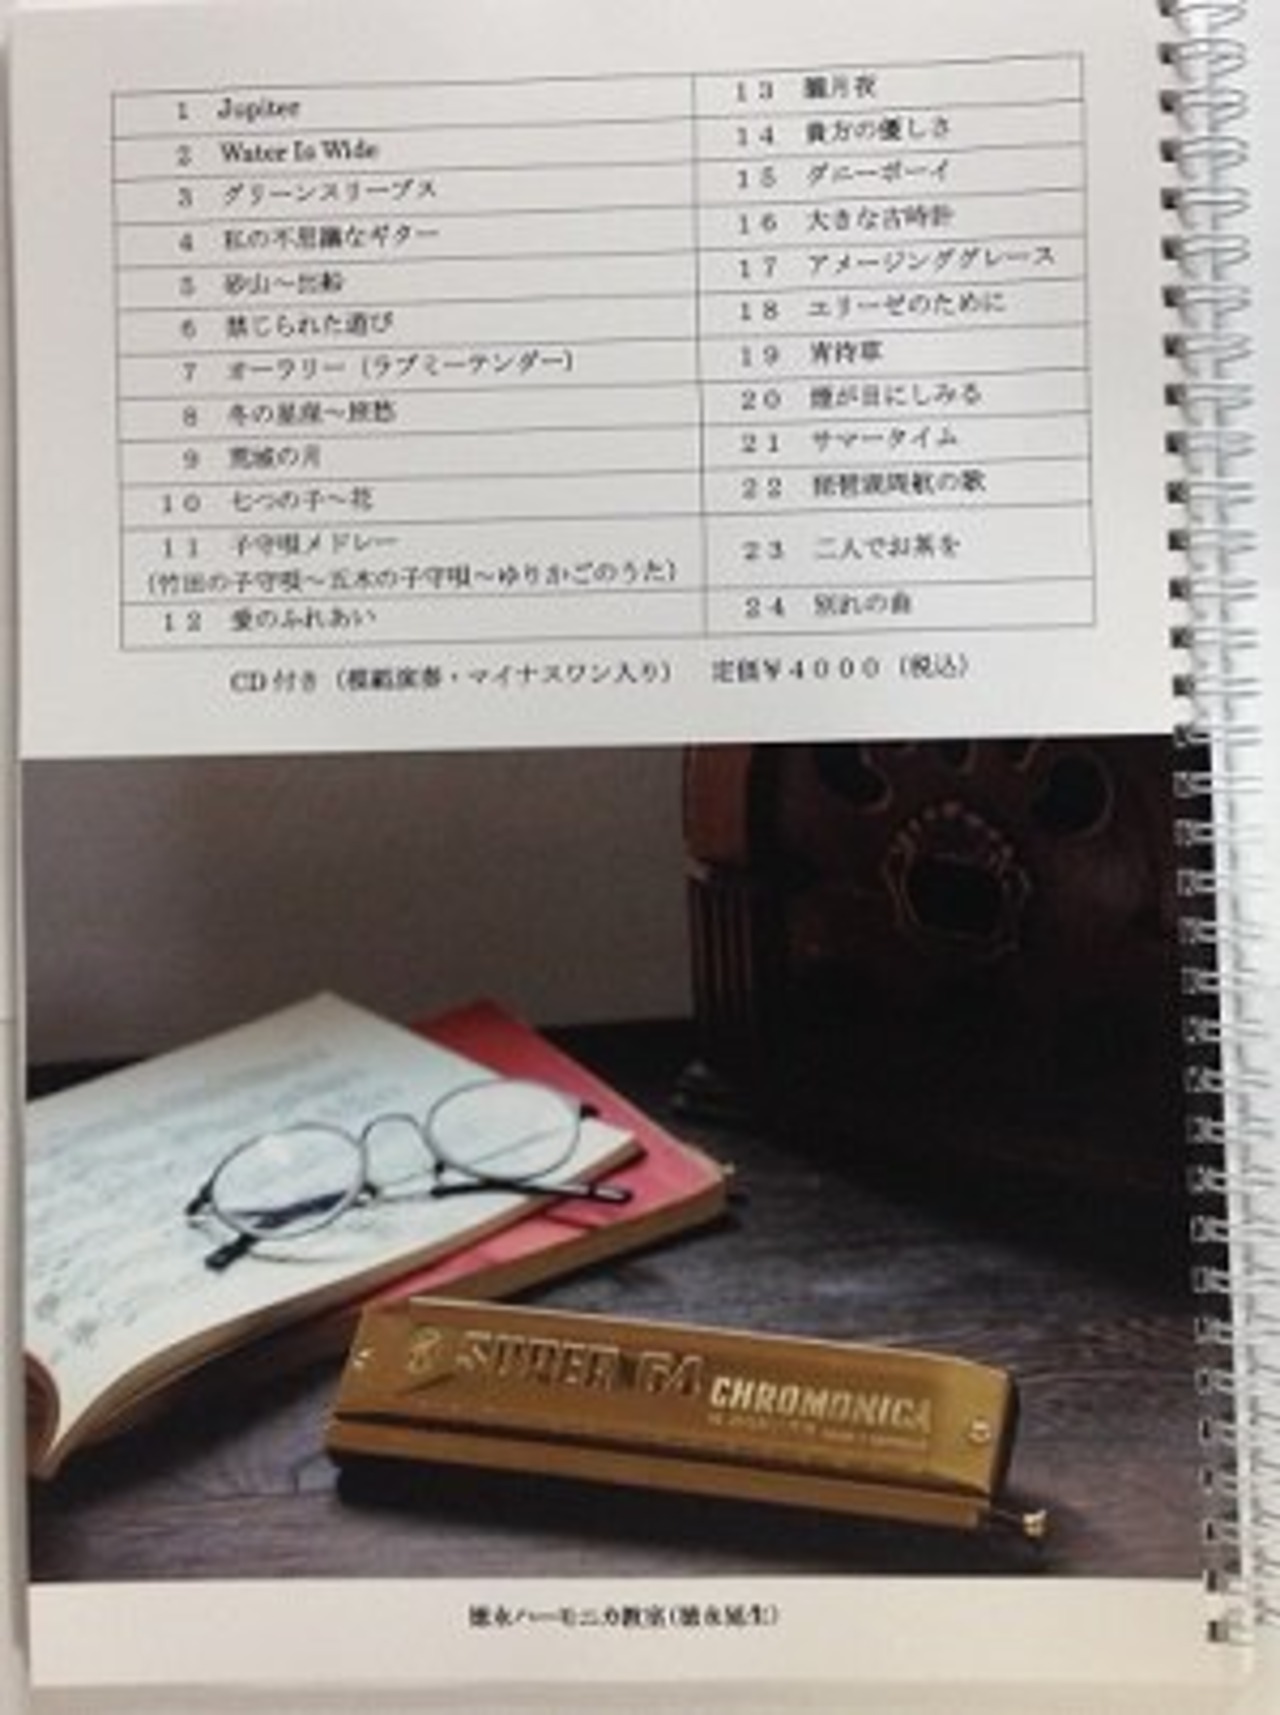 1 Jupiter
2 Water Is Wide
3 グリーンスリーブス
4 私の不思議なギター
5 砂山～出船
6 禁じられた遊び
7 オーラリー（ラブミーテンダー）
8 冬の星座～旅愁
9 荒城の月
10 七つの子～花
11 子守唄メドレー
（竹田の子守唄～五木の子守唄～ゆりかごのうた）
12 愛のふれあい
13 朧月夜
14 貴方の優しさ
15 ダニーボーイ
16 大きな古時計
17 アメージンググレース
18 エリーゼのために
19 宵待草
20 煙が目にしみる
21 サマータイム
22 琵琶湖周航の歌
23 二人でお茶を
24 別れの曲
CD付き（模範演奏・マイナスワン入り） 定価￥4000（税込）
SUPER 64
CHROMONICA
徳永ハーモニカ教室(徳永延生)